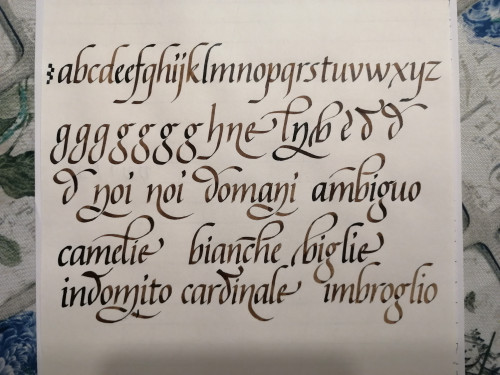 abcdeefghijklmnopqrstuvwxyz
gggggg hne l n b e d d
d noi noi domani ambiguo
camelie bianche biglie
indomito cardinale imbroglio